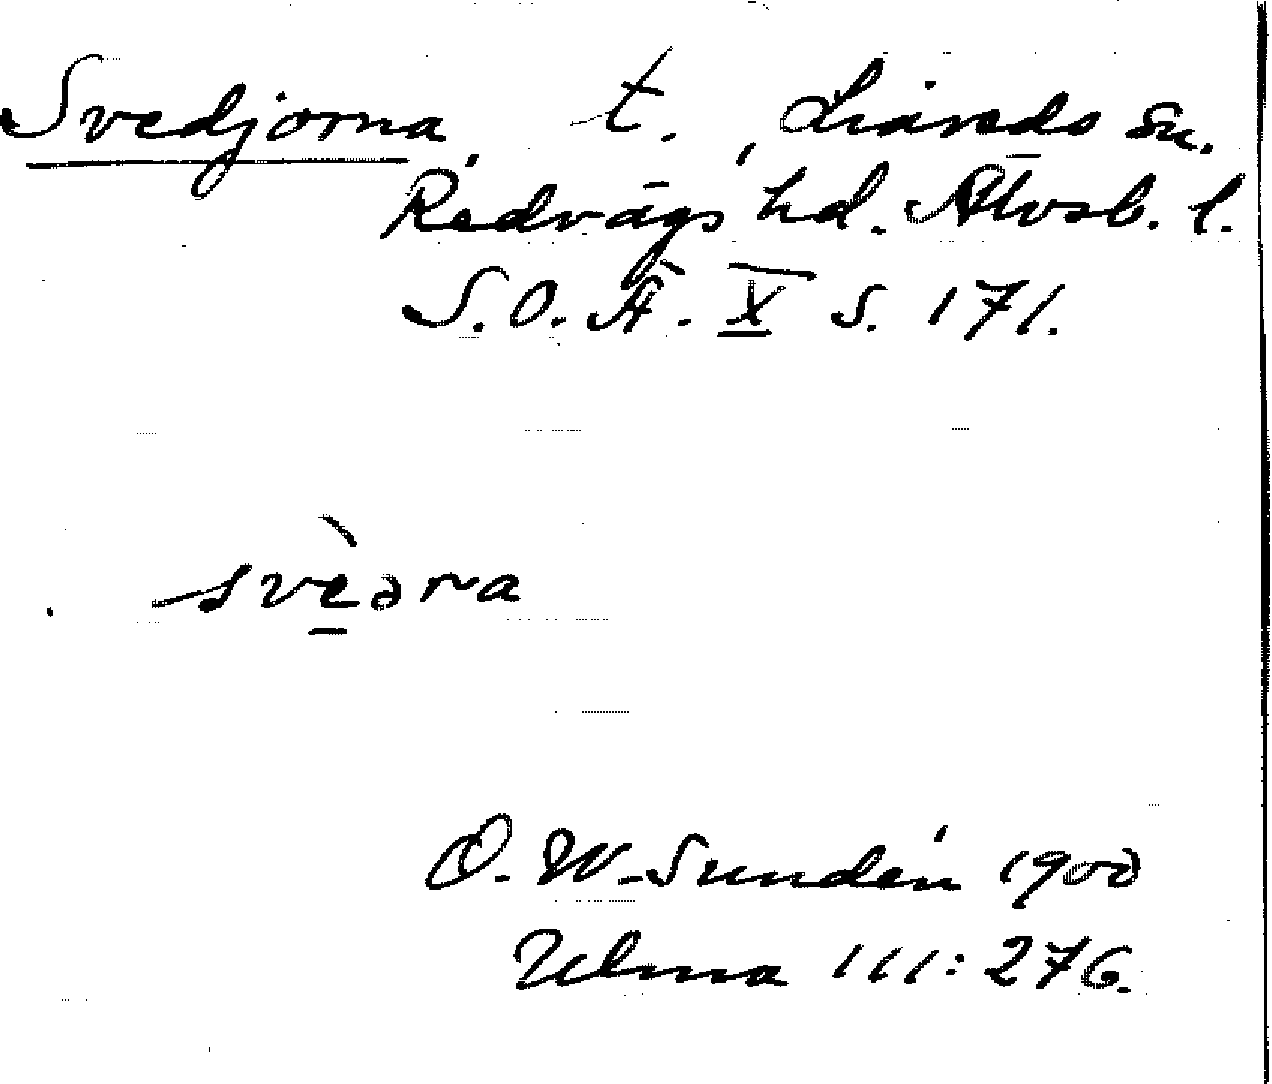 Svedjorna t. Liareds sn.
Redvägs hd. Älvsb. l.
S. O. Ä. X s. 171.
svèəra
D. W. Sundén 1900
Ulma 111: 276.